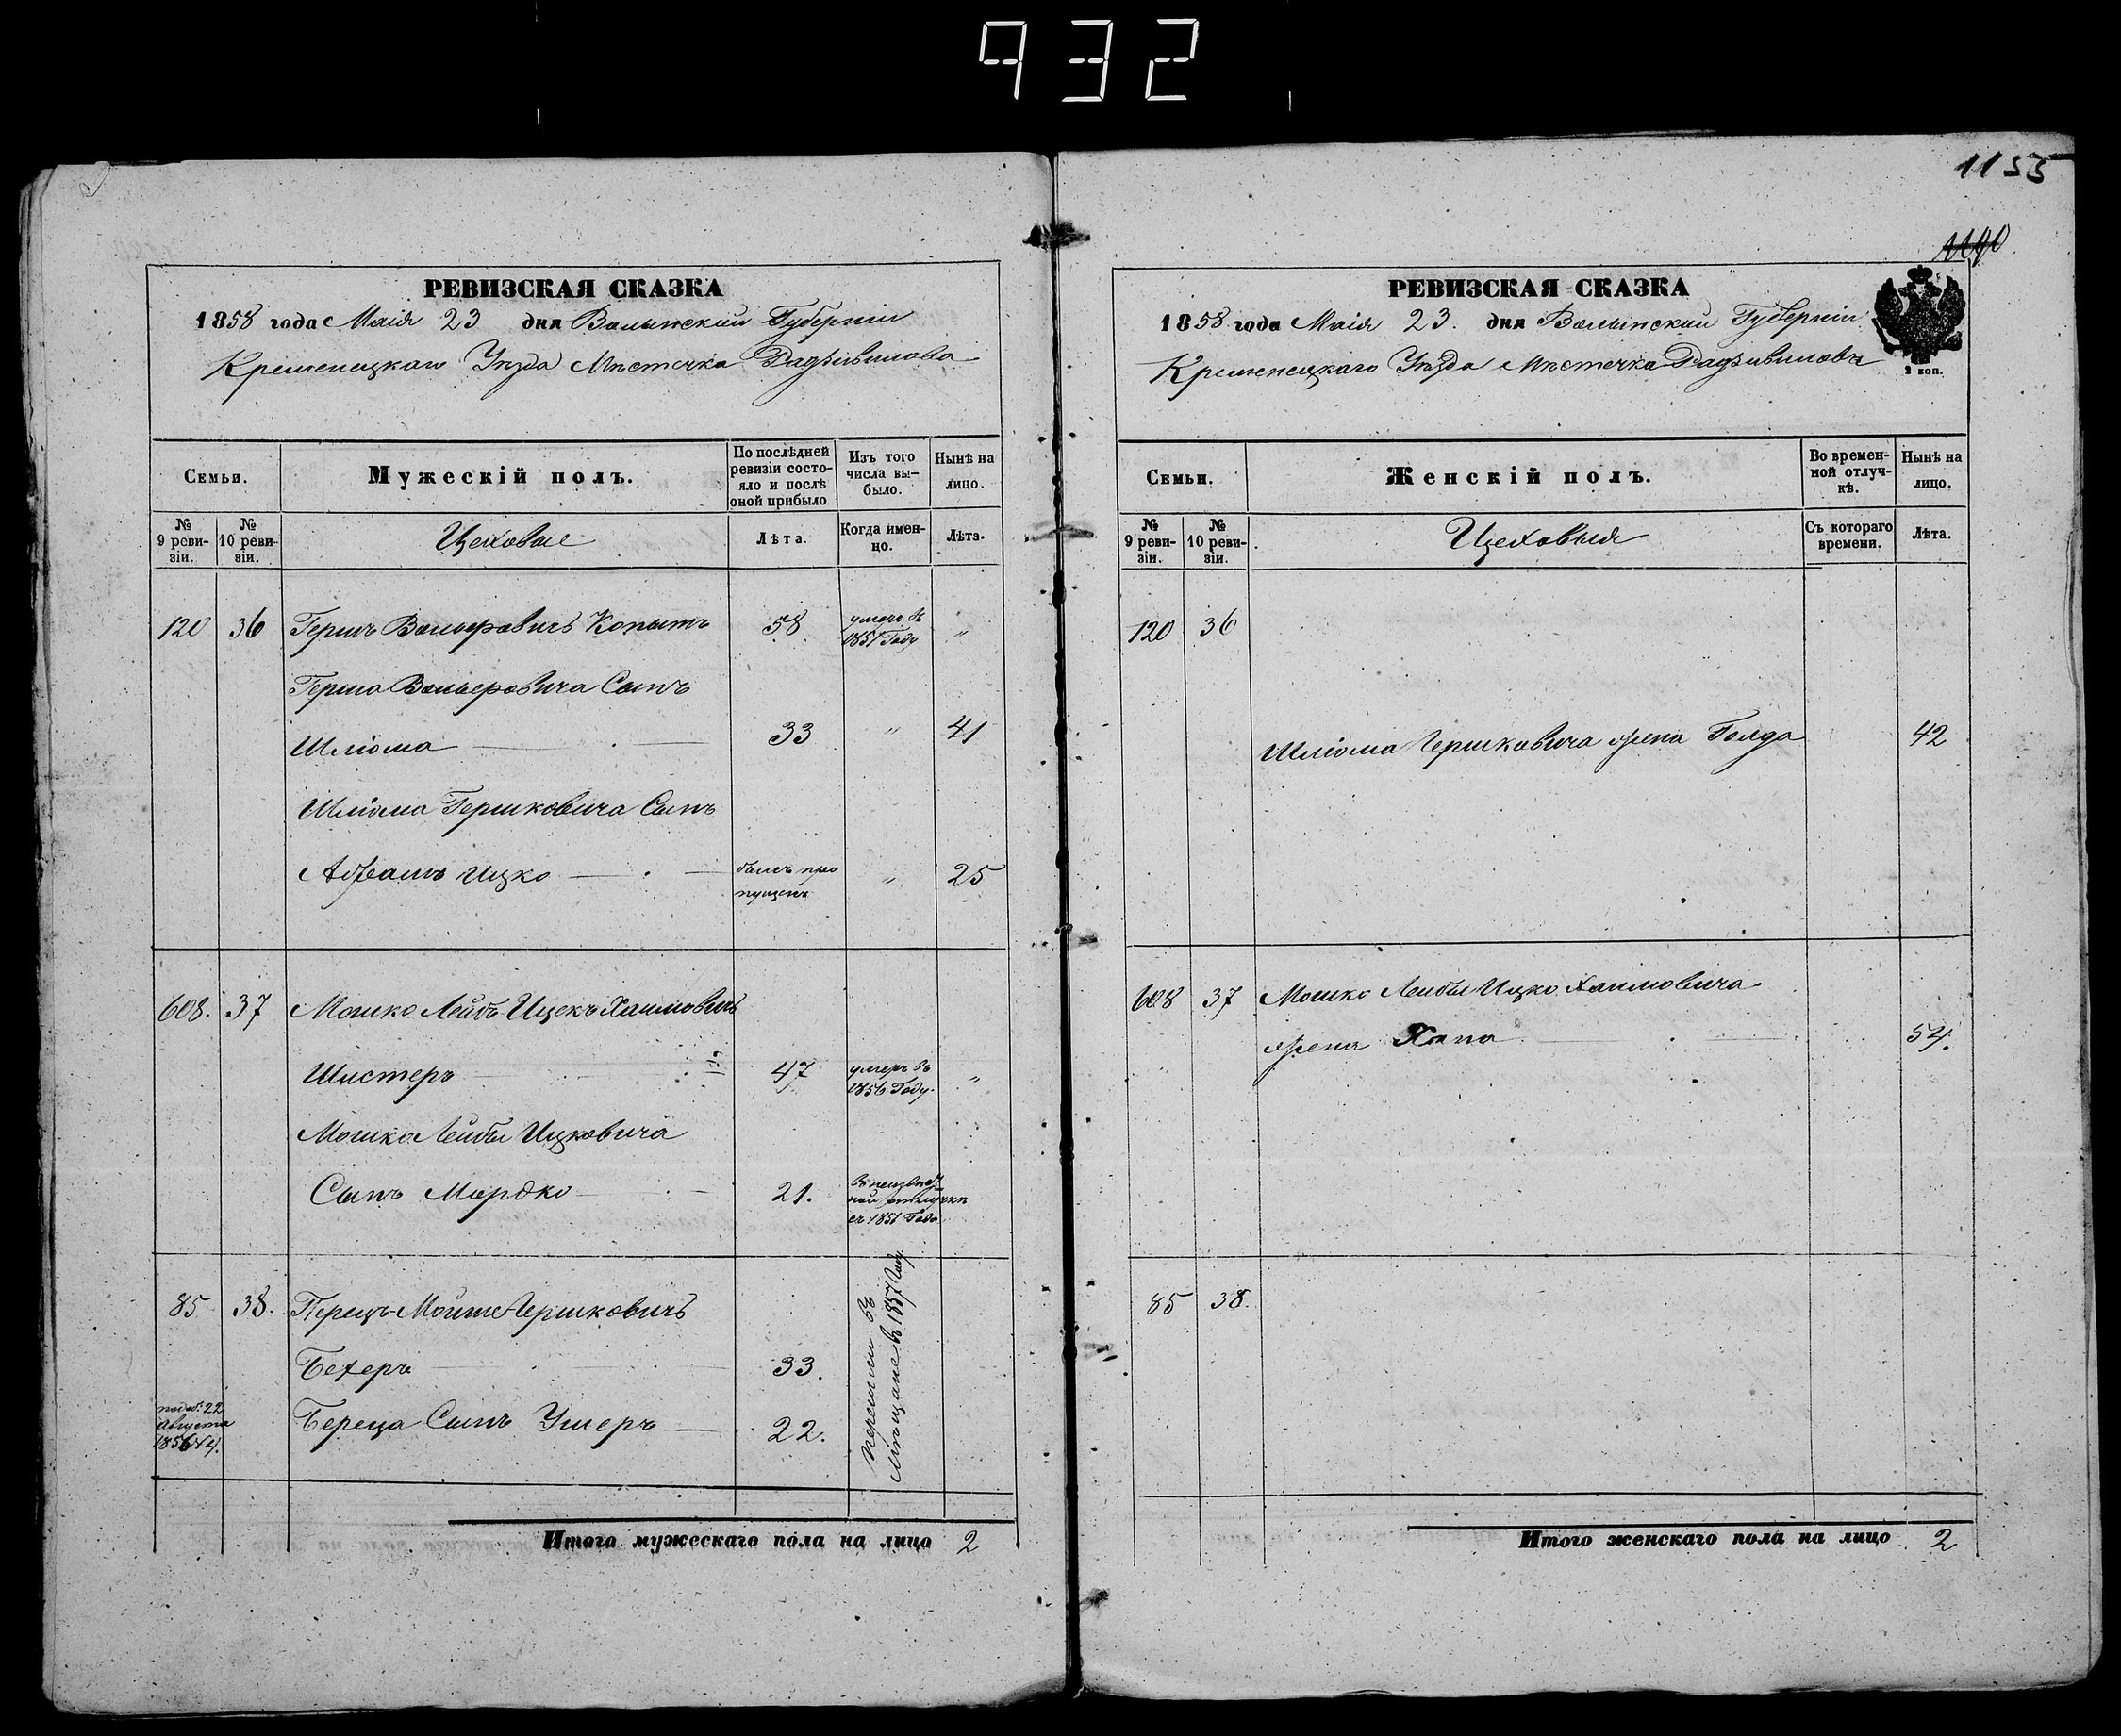 932
1155
1140
РЕВИЗСКАЯ СКАЗКА
1858 года Маія 23 дня Волынский Губерніи
Кременецкаго Уезда Местечка Радзивилова
Семьи.
Мужескій полъ.
По послѣдней ревизіи состо-
яло и послѣ
оной прибыло
Изъ того
числа вы-
было.
Нынѣ на
лицо.
№
9 реви-
зіи.
№
10 реви-
зіи.
Цеховые
Лѣта.
Когда имен-
но.
Лѣта.
120 36 Гершъ Вольфовичъ Копытъ 58 умеръ въ
1851 Году "
Герша Вольфовича Сынъ
Шліома 33 " 41
Шліома Гершковича Сынъ
Абрамъ Ицко былъ про
пущенъ " 25
608. 37 Мошко Лейбъ Ицекъ Хаимовичъ
Шистеръ 47 умеръ въ
1856 Году "
Мошко Лейбы Ицковича
Сынъ Мордко 21. въ неизвѣст
ной отлучкѣ
съ 1851 Года
85 38. Перецъ Мойше Гершковичъ
Бехеръ 33.
22
Августа
1856 №4.
Береца Сынъ Ушеръ 22.
Перешли въ
Мѣщане въ 1857 Году
Итого мужескаго пола на лицо 2
РЕВИЗСКАЯ СКАЗКА
1858 года Маія 23. дня Волынский Губерніи
Кременецкаго Уезда Местечка Радзивиловъ
2 коп.
Семьи.
Женскій полъ.
Во времен-
ной отлуч-
кѣ.
Нынѣ на
лицо.
№
9 реви-
зіи.
№
10 реви-
зіи.
Цеховыя
Съ котораго
времени.
Лѣта.
120 36
Шліома Гершковича жена Голда 42
608 37 Мошко Лейбы Ицко Хаимовича
жена Хана 54.
85 38.
Итого женскаго пола на лицо 2